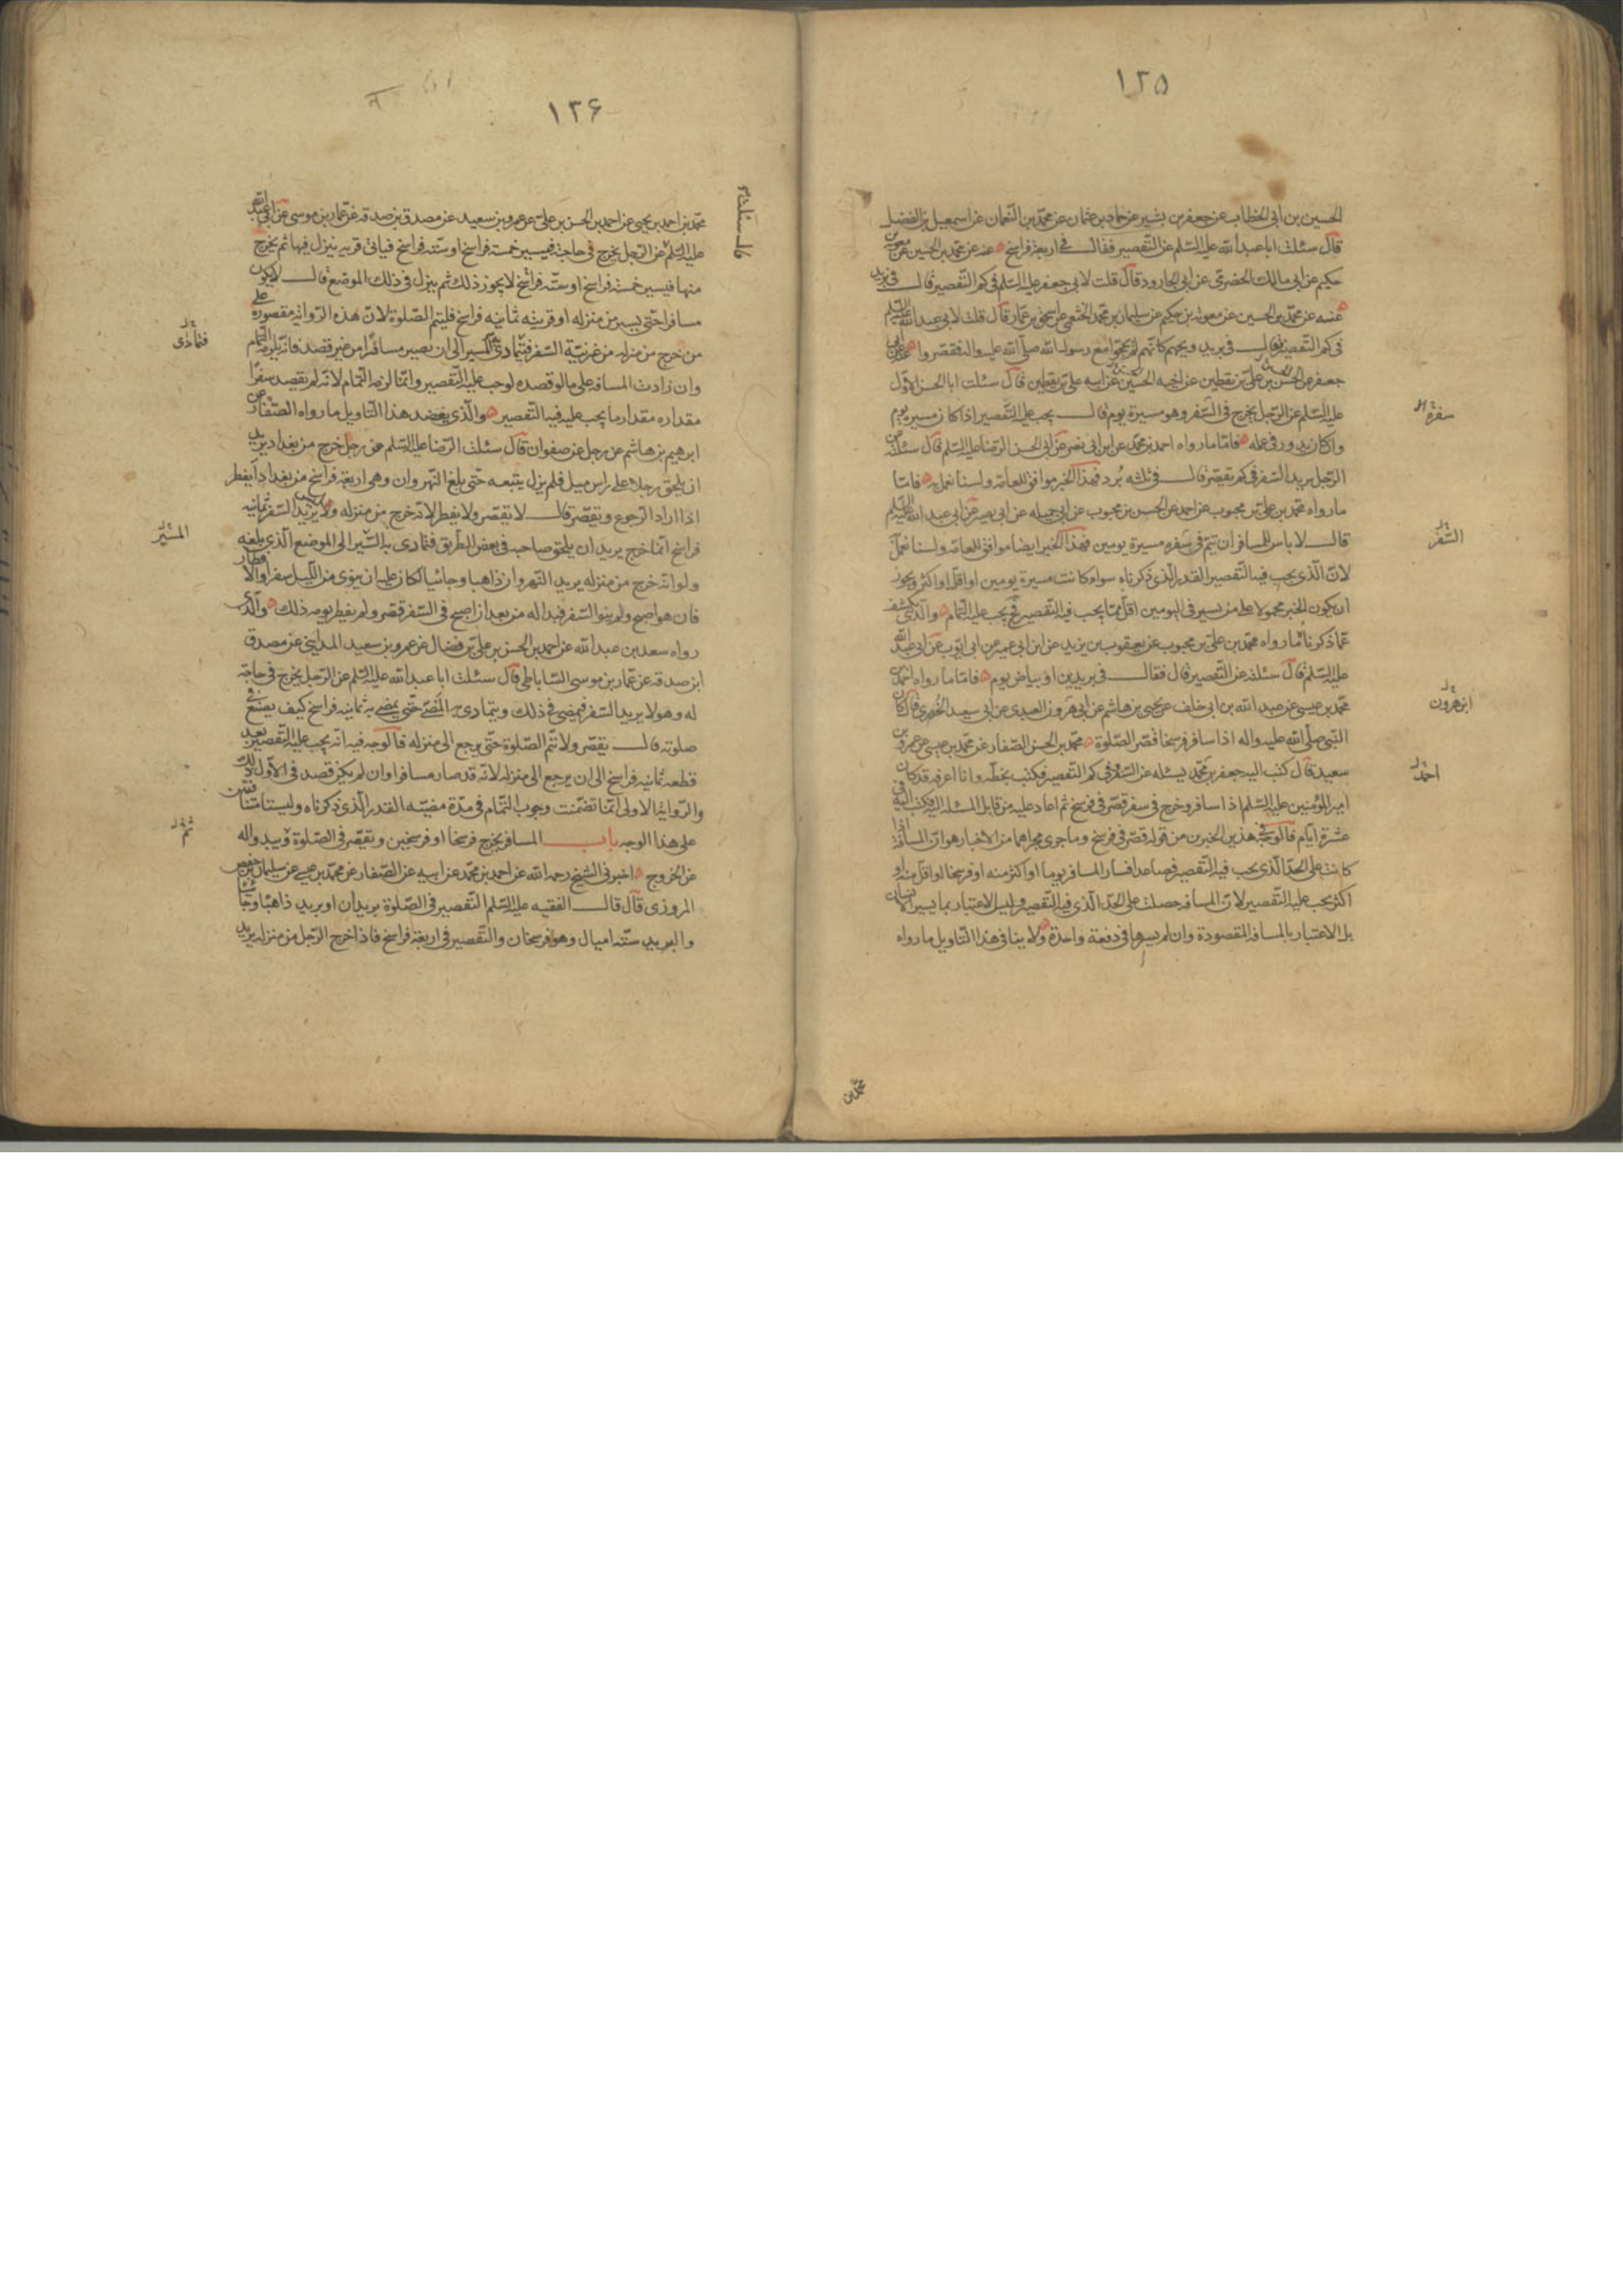 ١٢٥
الحسين بن ابى الخطاب عن جعفر بن بشير عن حماد بن عثمان عن محمد بن النعمان عن اسمعيل بن الفضل
قال سئلت ابا عبد الله عليه السلم عن التقصير فقال في اربعة فراسخ عنه عن محمد بن الحسين عن معوية بن
حكيم عن ابى مالك الحضرمى عن ابى الجارود قال قلت لابى جعفر عليه السلم في كم التقصير فقال في بريد
عنه عن محمد بن الحسين عن معوية بن حكيم عن سليمان بن محمد الخثعمى عن اسحق بن عمار قال قلت لابى عبد الله عليه السلم
في كم التقصير فقال في بريد ويحهم كانهم لم يحجوا مع رسول الله صلى الله عليه واله فقصروا
جعفر عن الحسن بن على بن يقطين عن اخيه الحسين عن ابيه على بن يقطين قال سئلت ابا الحسن الاول
عليه السلم عن الرجل يخرج في السفر وهو مسيرة يوم قال يجب عليه التقصير اذا كان مسيرة يوم
وان كان يدور في عمله فاما ما رواه احمد بن محمد عن ابن ابى نصر عن ابى الحسن الرضا عليه السلم قال سئلته عن
الرجل يريد السفر في كم يقصر قال في ثلثه برد فهذا الخبر موافق للعامة ولسنا نعمل به فاما
ما رواه محمد بن على بن محبوب عن احمد عن الحسن بن محبوب عن ابى جميله عن ابى بصير عن ابى عبد الله عليه السلم
قال لا باس للمسافر ان يتم في سفره مسيرة يومين فهذا الخبر ايضا موافق للعامة ولسنا نعمل به
لان الذى يجب فيه التقصير القدر الذى ذكرناه سواء كانت مسيرة يومين او اقل او اكثر ويجوز
ان يكون الخبر محمولا على من يسير في اليومين اقل مما يجب فيه التقصير فح يجب عليه التمام والذى يكشف
عما ذكرناه ما رواه محمد بن على بن محبوب عن يعقوب بن يزيد عن ابن ابى عمير عن ابى ايوب عن ابى عبد الله
عليه السلم قال سئلته عن التقصير قال فقال في بريدين او بياض يوم فاما ما رواه احمد بن
محمد بن عيسى عن عبد الله بن ابى خلف عن يحيى بن هاشم عن ابى هرون العبدى عن ابى سعيد الخدرى قال كان
النبى صلى الله عليه واله اذا سافر فرسخا قصر الصلوة محمد بن الحسن الصفار عن محمد بن عيسى عن عمرو بن
سعيد قال كتب اليه جعفر بن محمد يسئله عن السفر وفي كم التقصير فكتب بخطه وانا اعرفه قد كان
امير المؤمنين عليه السلم اذا سافر وخرج في سفر قصر في فرسخ ثم اعاد عليه من قابل المسئلة اليه فكتب اليه في
عشرة ايام فالوجه في هذين الخبرين من قوله قصر في فرسخ وما جرى مجراهما من الاخبار هو ان المسافة اذا
كانت على الحد الذى يجب فيه التقصير فصاعدا فسار المسافر يوما او اكثر منه او فرسخا او اقل منه او
اكثر يجب عليه التقصير لان المسافة حصلت على الحد الذى فيه التقصير وليس الاعتبار بما يسير الانسان
بل الاعتبار بالمسافة المقصودة وان لم يسرها في دفعة واحدة ولا ينافى هذا التاويل ما رواه
سفره
السفر
ابن هرون
احمد
محمد بن
١٢۶
محمد بن احمد بن يحيى عن احمد بن الحسن بن على عن عمرو بن سعيد عن مصدق بن صدقه عن عمار بن موسى عن ابى عبد الله
عليه السلم عن الرجل يخرج في حاجة فيسير خمسة فراسخ او ستة فراسخ فياتى قريه فينزل فيها ثم يخرج
منها فيسير خمسة فراسخ او ستة فراسخ لا يجوز ذلك ثم ينزل في ذلك الموضع قال لا يكون
مسافرا حتى يسير من منزله او قريته ثمانية فراسخ فليتم الصلوة لان هذه الرواية مقصورة على
من خرج من منزله من غير نية السفر فتمادى به المسير الى ان يصير مسافرا من غير قصد فانه يلزمه التمام
وان زادت المسافة على ما لو قصده لوجب عليه التقصير وانما لزمه التمام لانه لم يقصد سفرا
مقداره مقدار ما يجب عليه فيه التقصير والذى يعضد هذا التاويل ما رواه الصفار عن
ابرهيم بن هاشم عن رجل عن صفوان قال سئلت الرضا عليه السلم عن رجل خرج من بغداد يريد
ان يلحق رجلا على راس ميل فلم يزل يتبعه حتى بلغ النهروان وهى اربعة فراسخ من بغداد ايفطر
اذا اراد الرجوع ويقصر قال لا يقصر ولا يفطر لانه خرج من منزله وليس يريد السفر ثمانية
فراسخ انما خرج يريد ان يلحق صاحبه في بعض الطريق فتمادى به السير الى الموضع الذى بلغه
ولو انه خرج من منزله يريد النهروان ذاهبا وجائيا لكان عليه ان ينوى من الليل سفرا والافطار
فان هو اصبح ولم ينو السفر فبدا له من بعد ان اصبح في السفر قصر ولم يفطر يومه ذلك والذى
رواه سعد بن عبد الله عن احمد بن الحسن بن على بن فضال عن عمرو بن سعيد المداينى عن مصدق
ابن صدقه عن عمار بن موسى الساباطى قال سئلت ابا عبد الله عليه السلم عن الرجل يخرج في حاجة
له وهو لا يريد السفر فيمضى في ذلك ويتمادى به المضى حتى يمضى به ثمانية فراسخ كيف يصنع في
صلوته قال يقصر ولا يتم الصلوة حتى يرجع الى منزله فالوجه فيه انه يجب عليه التقصير بعد
قطعه ثمانية فراسخ الى ان يرجع الى منزله لانه قد صار مسافرا وان لم يكن قصد في الاول ذلك
والرواية الاولى انما تضمنت وجوب التمام في مدة مضيه القدر الذى ذكرناه وليستا متنافيتين
على هذا الوجه باب المسافر يخرج فرسخا او فرسخين ويقصر في الصلوة ويبدو له
عن الخروج اخبرنى الشيخ رحمه الله عن احمد بن محمد عن ابيه عن الصفار عن محمد بن عيسى عن سليمان بن حفص
المروزى قال قال الفقيه عليه السلم التقصير في الصلوة بريدان او بريد ذاهبا وجائيا
والبريد ستة اميال وهو فرسخان والتقصير في اربعة فراسخ فاذا خرج الرجل من منزله يريد
قال سئلته
فتمادى
المسير
ثم